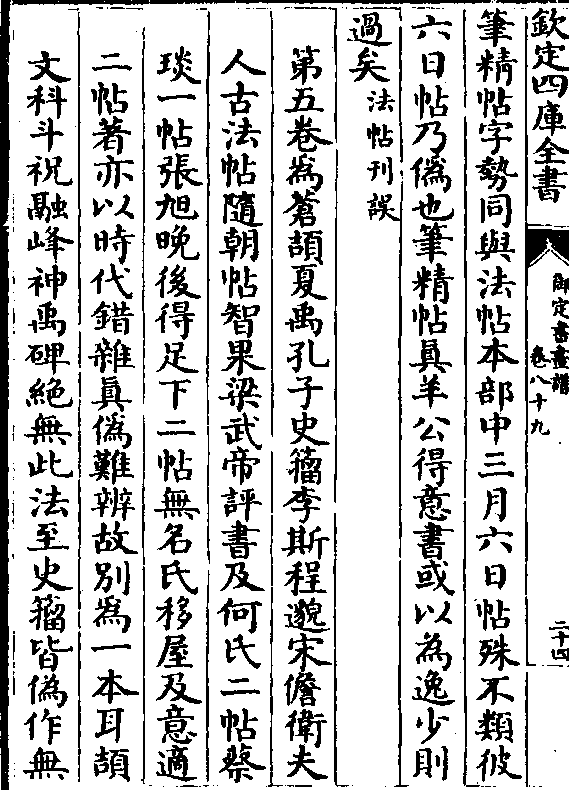 欽定四庫全書
御定書畫譜
卷八十九
二十四
筆精帖字勢同與法帖本部中三月六日帖殊不類彼
六日帖乃偽也筆精帖真羊公得意書或以為逸少則
過矣法帖刊誤
第五卷為蒼頡夏禹孔子史籀李斯程邈宋儋衛夫
人古法帖隨朝帖智果梁武帝評書及何氏二帖蔡
琰一帖張旭晚後得足下二帖無名氏移屋及意適
二帖著亦以時代錯雜真偽難辨故別為一本耳頡
文科斗祝融峰神禹碑絕無此法至史籀皆偽作無